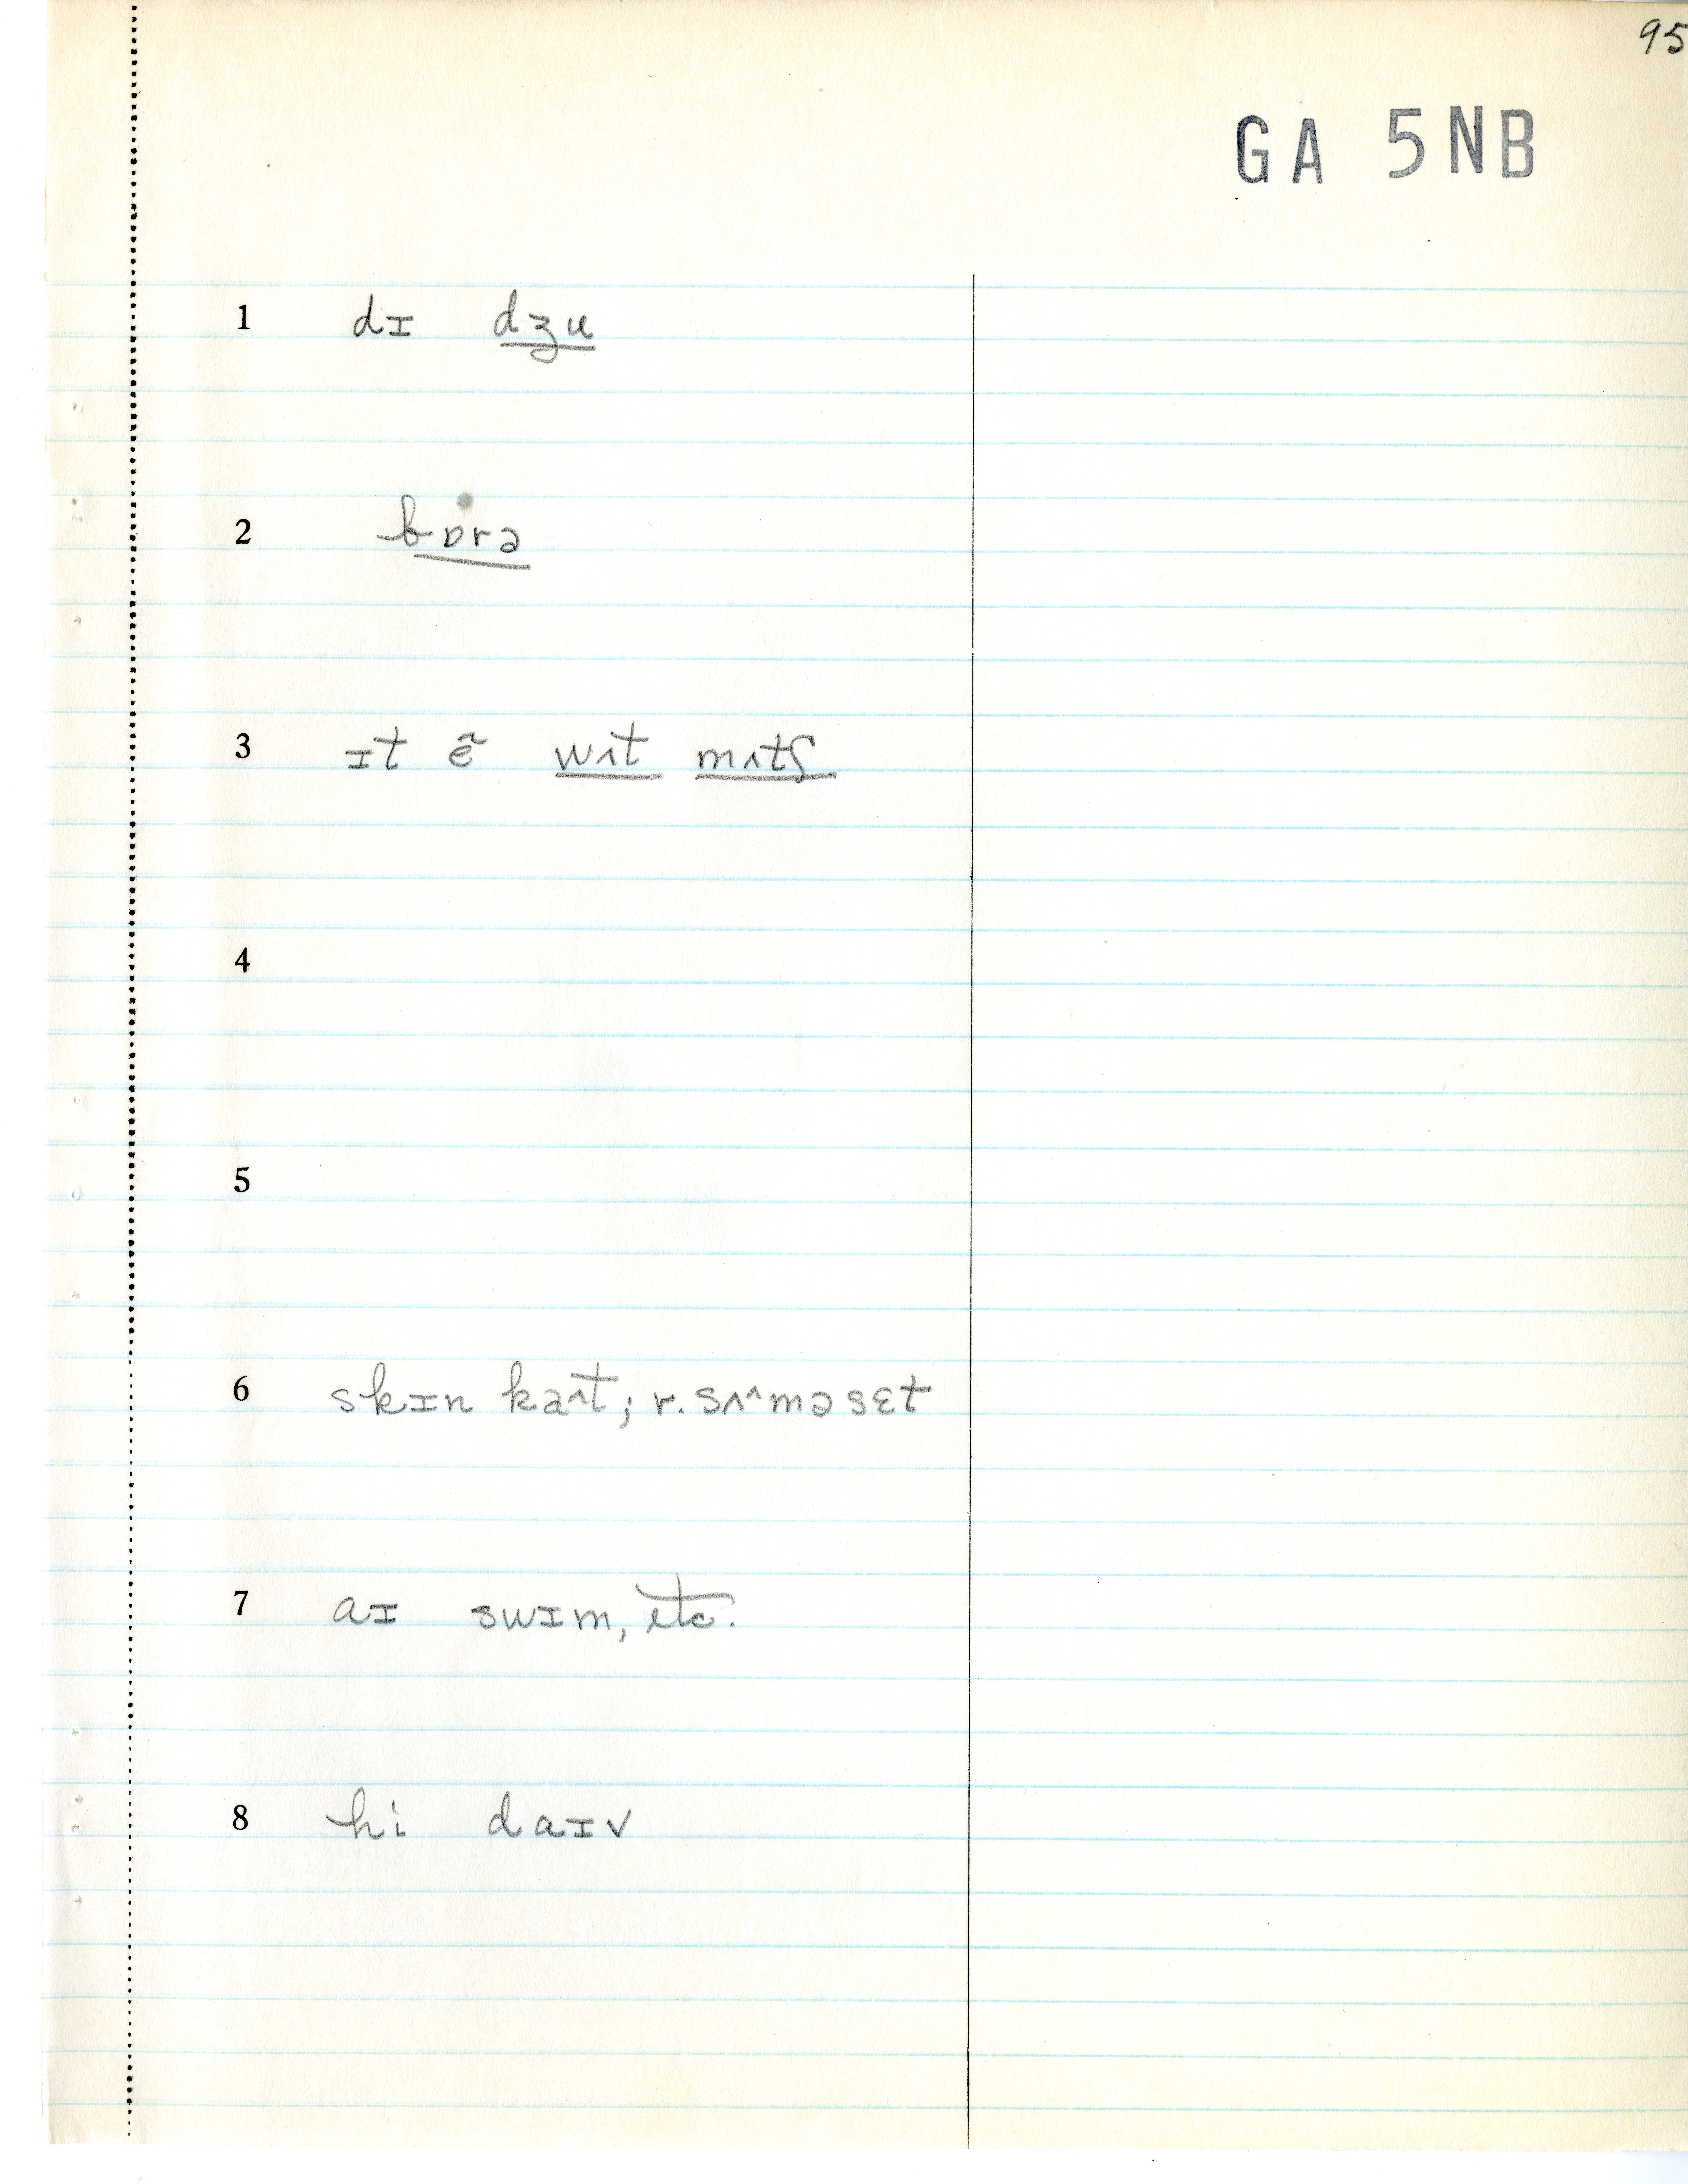 95
GA 5NB
1 dɪ dʒu
2 bɒrə
3 ɪt ẽ wʌt mʌtʃ
4
5
6 skɪn kaʌt; r. sʌ^^məsɛt
7 aɪ swɪm, etc.
8 hi daɪv